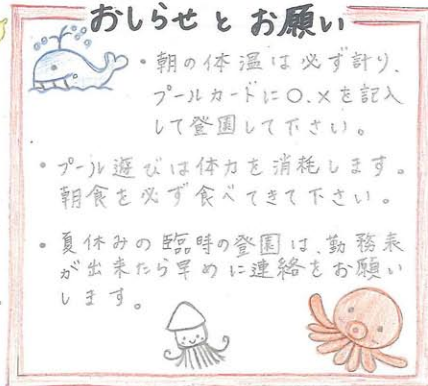 おしらせ と お願い
・朝の体温は必ず計り、
プールカードに○、×を記入
して登園して下さい。
・プール遊びは体力を消耗します。
朝食を必ず食べてきて下さい。
・夏休みの臨時の登園は、勤務表
が出来たら早めに連絡をお願い
します。